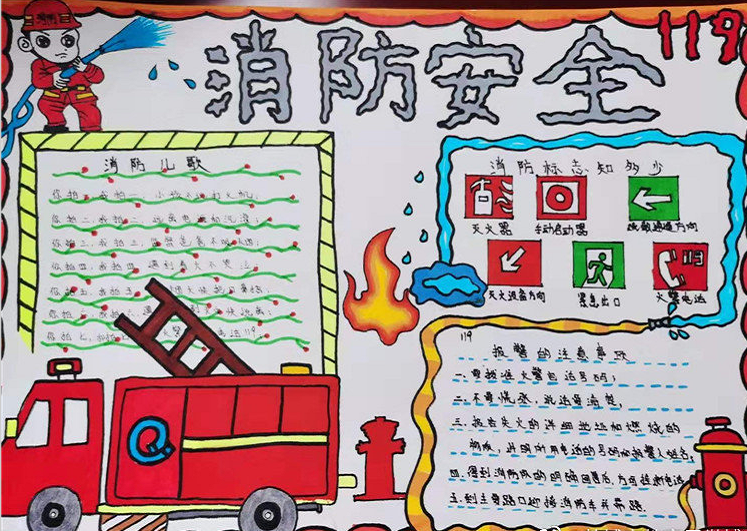 消防安全
119
消防儿歌
你拍一,我拍一,小孩不玩打火机;
你拍二,我拍二,
你拍三,我拍三,
你拍四,我拍四,遇到着火不
你拍五,我拍五,
你拍六,我拍六,
你拍七,我拍七,火警电话119
消防标志知多少
灭火器
手动启动器
疏散通道方向
灭火设备方向
紧急出口
火警电话
119
报警的注意事项
一.要按准火警电话号码;
二.不要慌张,说话要清楚,
三.报告失火的详细地址和燃烧的
物质,并明所用电话的号码和报警人姓名,
四.得到消防队的明确回答后,方可挂断电话
五.到主要路口迎接消防车并带路.